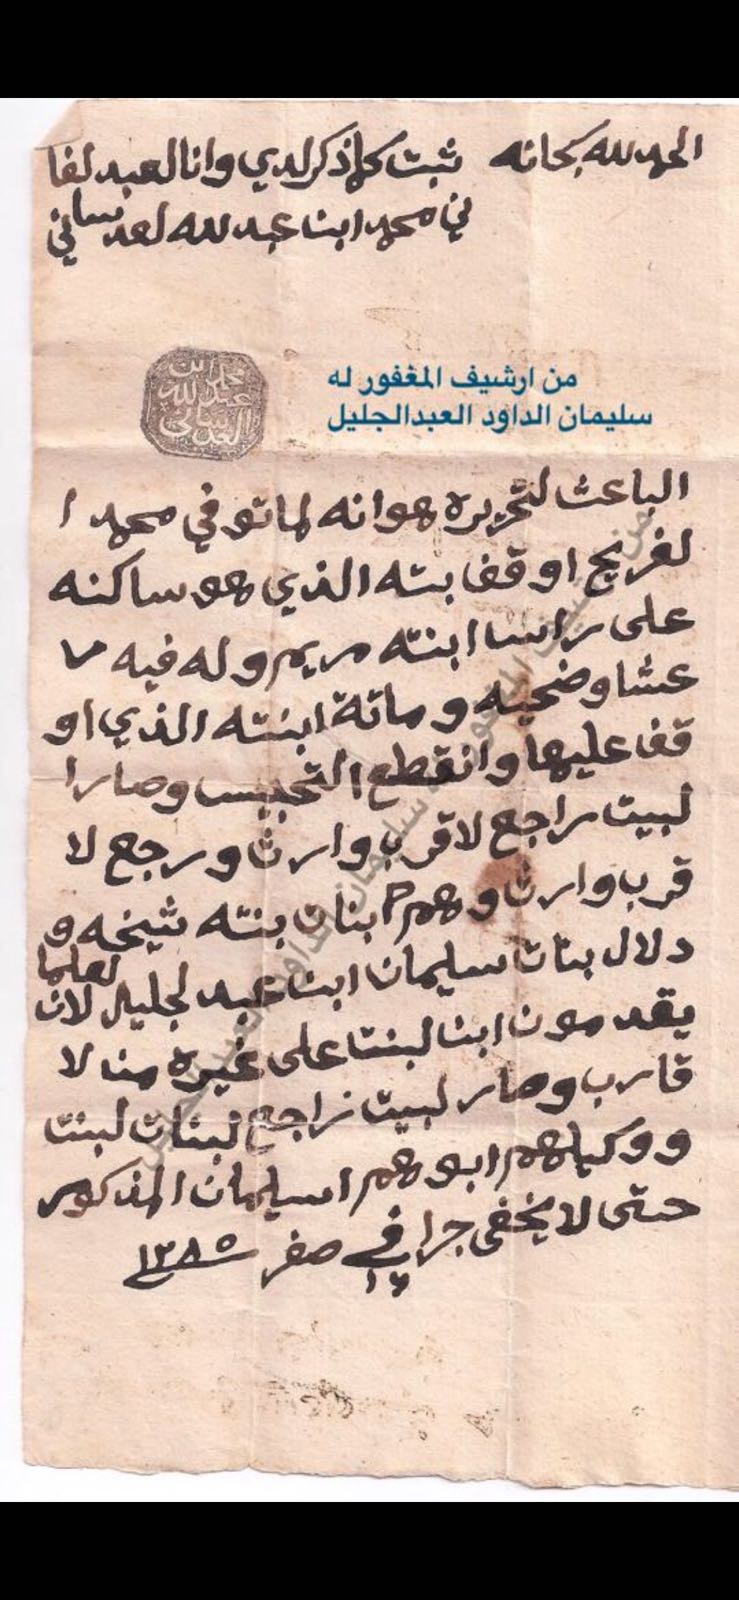 الحمد لله سبحانه ثبت كلما ذكر لدي وانا لعبد لفا
ني محمد ابن عبد لله لعدساني
محمد ابن
عبد لله
العدساني
من ارشيف المغفور له
سليمان الداود العبدالجليل
الباعث لتحريره هو انه لما توفي محمد ا
لفريج اوقف بيته الذي هو ساكنه
على راس ابنته مريم وله فيه
عشا وضحيه وماتة ابنته الذي او
قف عليها وانقطع التحبيس وصار ا
لبيت راجع لاقرب وارث ورجع لا
قرب وارث وهم بنات بنته شيخه و
دلال بنات سليمان ابن عبد لجليل لان لعلما
يقدمون ابن لبنت على غيره من الا
قارب وصار لبيت راجع لبنات لبنت
ووكيلهم ابوهم سليمان المذكور
حتى لا يخفى جرا في ١٦ صفر ١٣٨٥